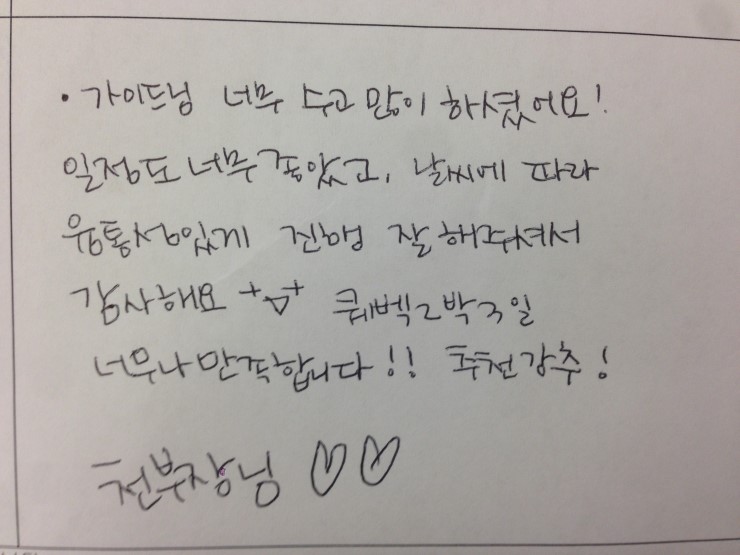 · 가이드님 너무 수고 많이 하셨어요!
일정도 너무 좋았고, 날씨에 따라
융통성있게 진행 잘 해주셔서
감사해요 +▽+ 퀘벡2박3일
너무나 만족합니다!! 추천강추!
천부장님 ♡♡